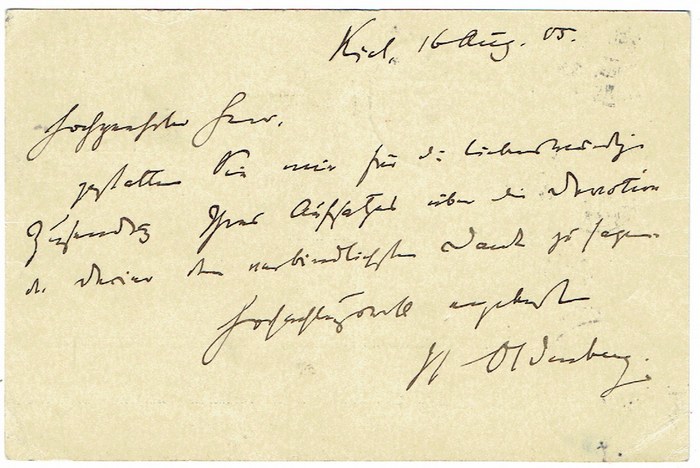 Kiel, 16 Aug. 05.
Hochgeehrter Herr,
gestatten Sie mir für die liebenswürdige
Zusendung Ihres Aufsatzes über die Devotion
den verbindlichsten Dank zu sagen.
Hochachtungsvoll ergebenst
H Oldenberg.